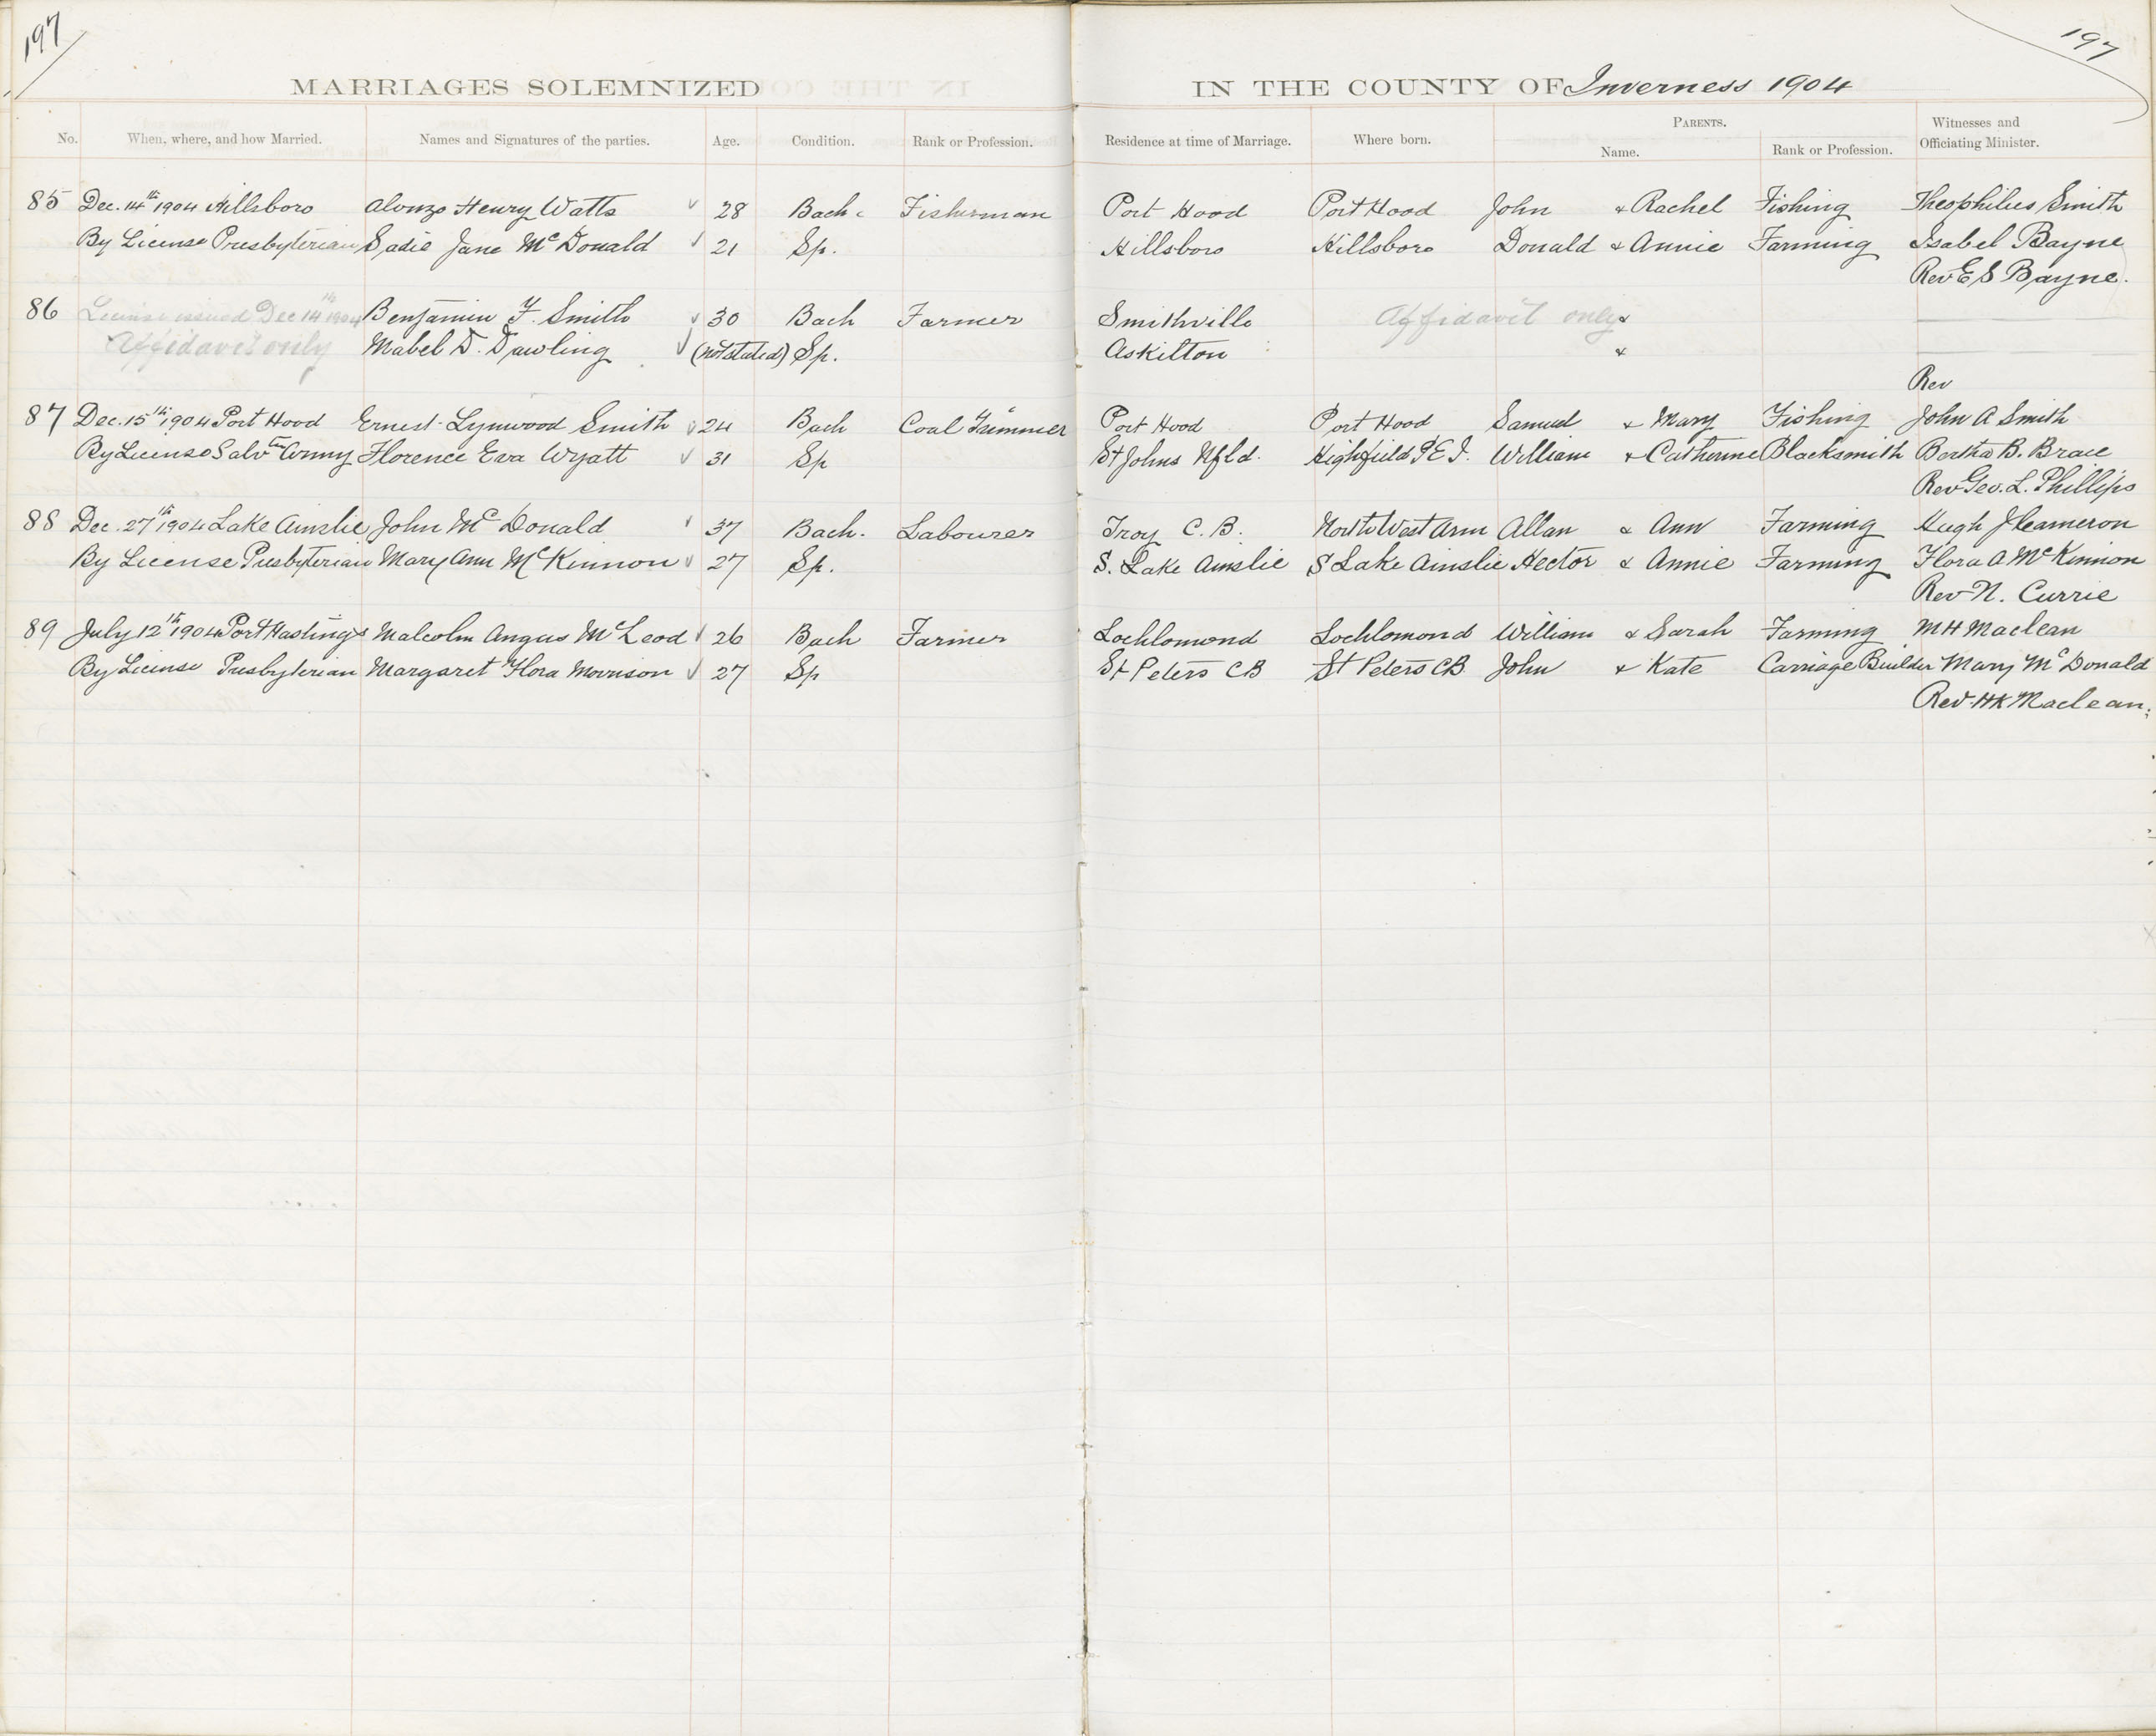 197
197
MARRIAGES SOLEMNIZED IN THE COUNTY OF Inverness 1904
No. When, where, and how Married. Names and Signatures of the parties. Age. Condition. Rank or Profession. Residence at time of Marriage. Where born. PARENTS. Name. Rank or Profession. Witnesses and Officiating Minister.
85 Dec. 14th 1904 Hillsboro Alonzo Henry Watts 28 Bach. Fisherman Port Hood Port Hood John & Rachel Fishing Theophilus Smith
By License Presbyterian Sadie Jane McDonald 21 Sp. Hillsboro Hillsboro Donald & Annie Farming Isabel Bayne
Rev E S Bayne.
86 License issued Dec 14th 1904 Benjamin F. Smith 30 Bach Farmer Smithville Affidavit only &
Affidavit only Mabel D. Dawling (not stated) Sp. Askilton &
Rev
87 Dec. 15th 1904 Port Hood Ernest Lynwood Smith 24 Bach Coal Trimmer Port Hood Port Hood Samuel & Mary Fishing John A Smith
By License Salvtn Army Florence Eva Wyatt 31 Sp St Johns Nfld. Highfield P.E.I. William & Catherine Blacksmith Bertha B. Brace
Rev Geo. L. Phillips
88 Dec. 27th 1904 Lake Ainslie John McDonald 37 Bach. Labourer Troy C.B. North West Arm Allan & Ann Farming Hugh J Cameron
By License Presbyterian Mary Ann McKinnon 27 Sp. S. Lake Ainslie S Lake Ainslie Hector & Annie Farming Flora A McKinnon
Rev N. Currie
89 July 12th 1904 Port Hastings Malcolm Angus McLeod 26 Bach Farmer Lochlomond Lochlomond William & Sarah Farming M H Maclean
By License Presbyterian Margaret Flora Morrison 27 Sp St Peters CB St Peters CB John & Kate Carriage Builder Mary McDonald
Rev HK Maclean.